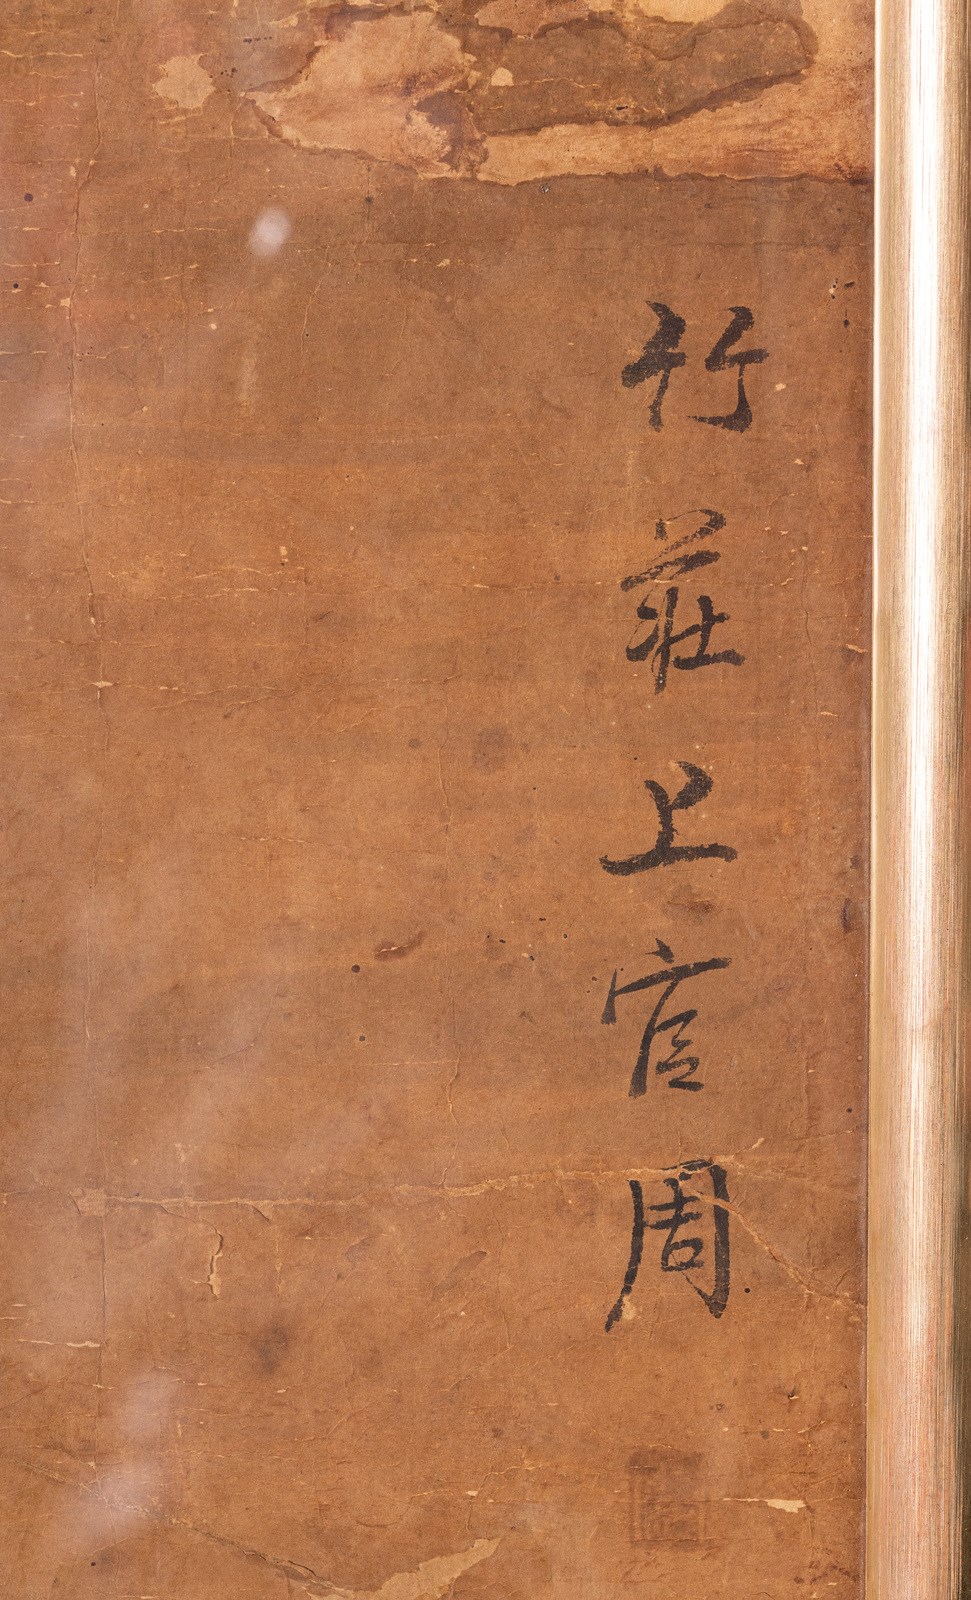 竹莊上官周